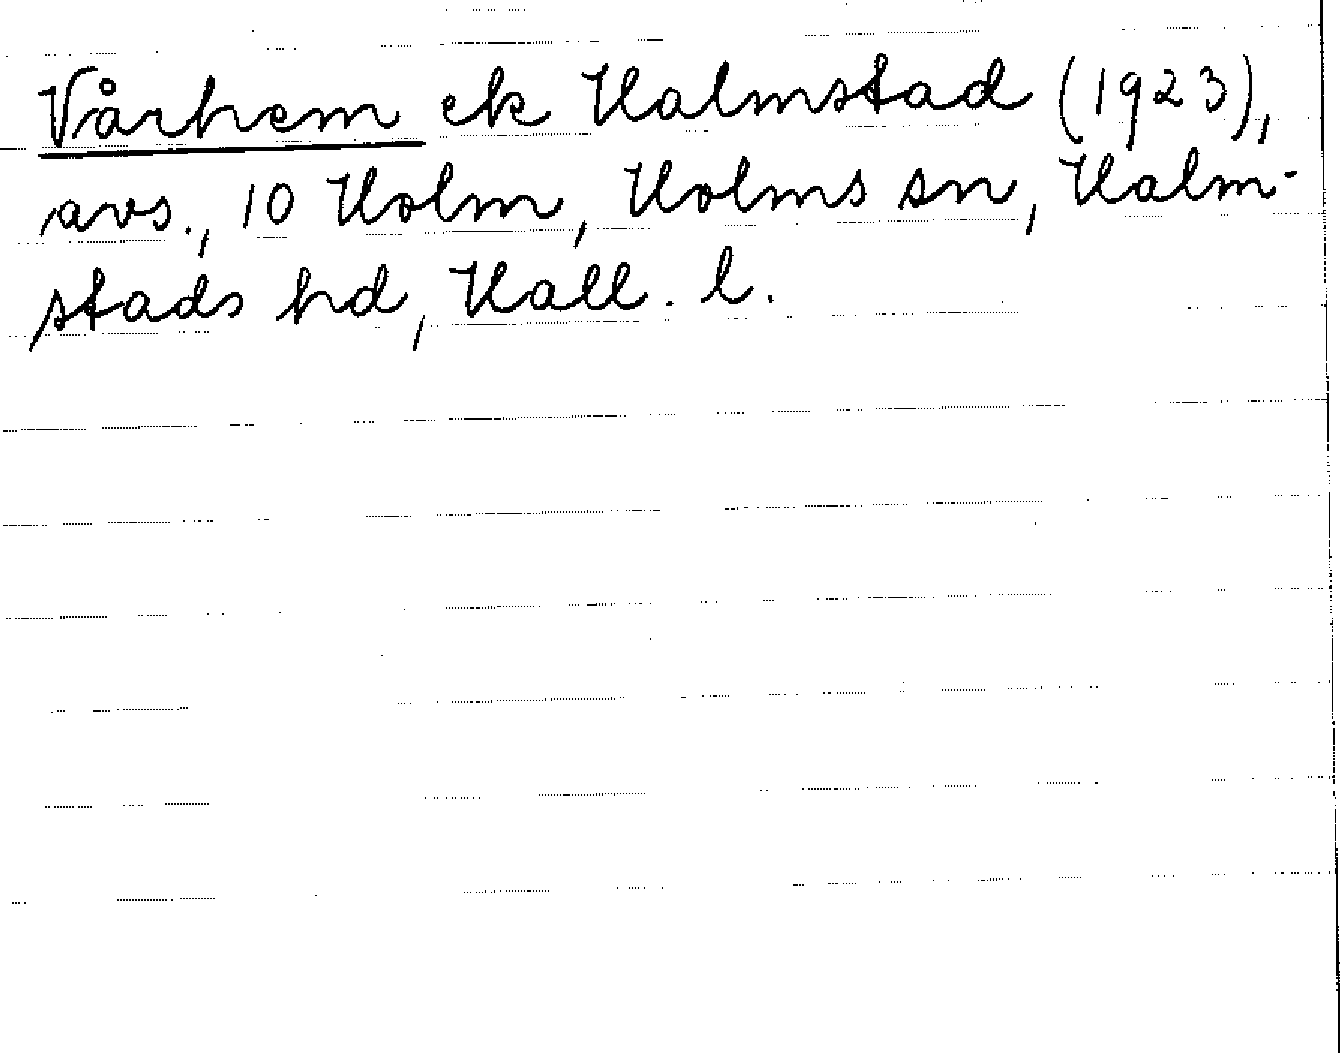 Vårhem ek Halmstad (1923),
avs., 10 Holm, Holms sn, Halm-
stads hd, Hall. l.